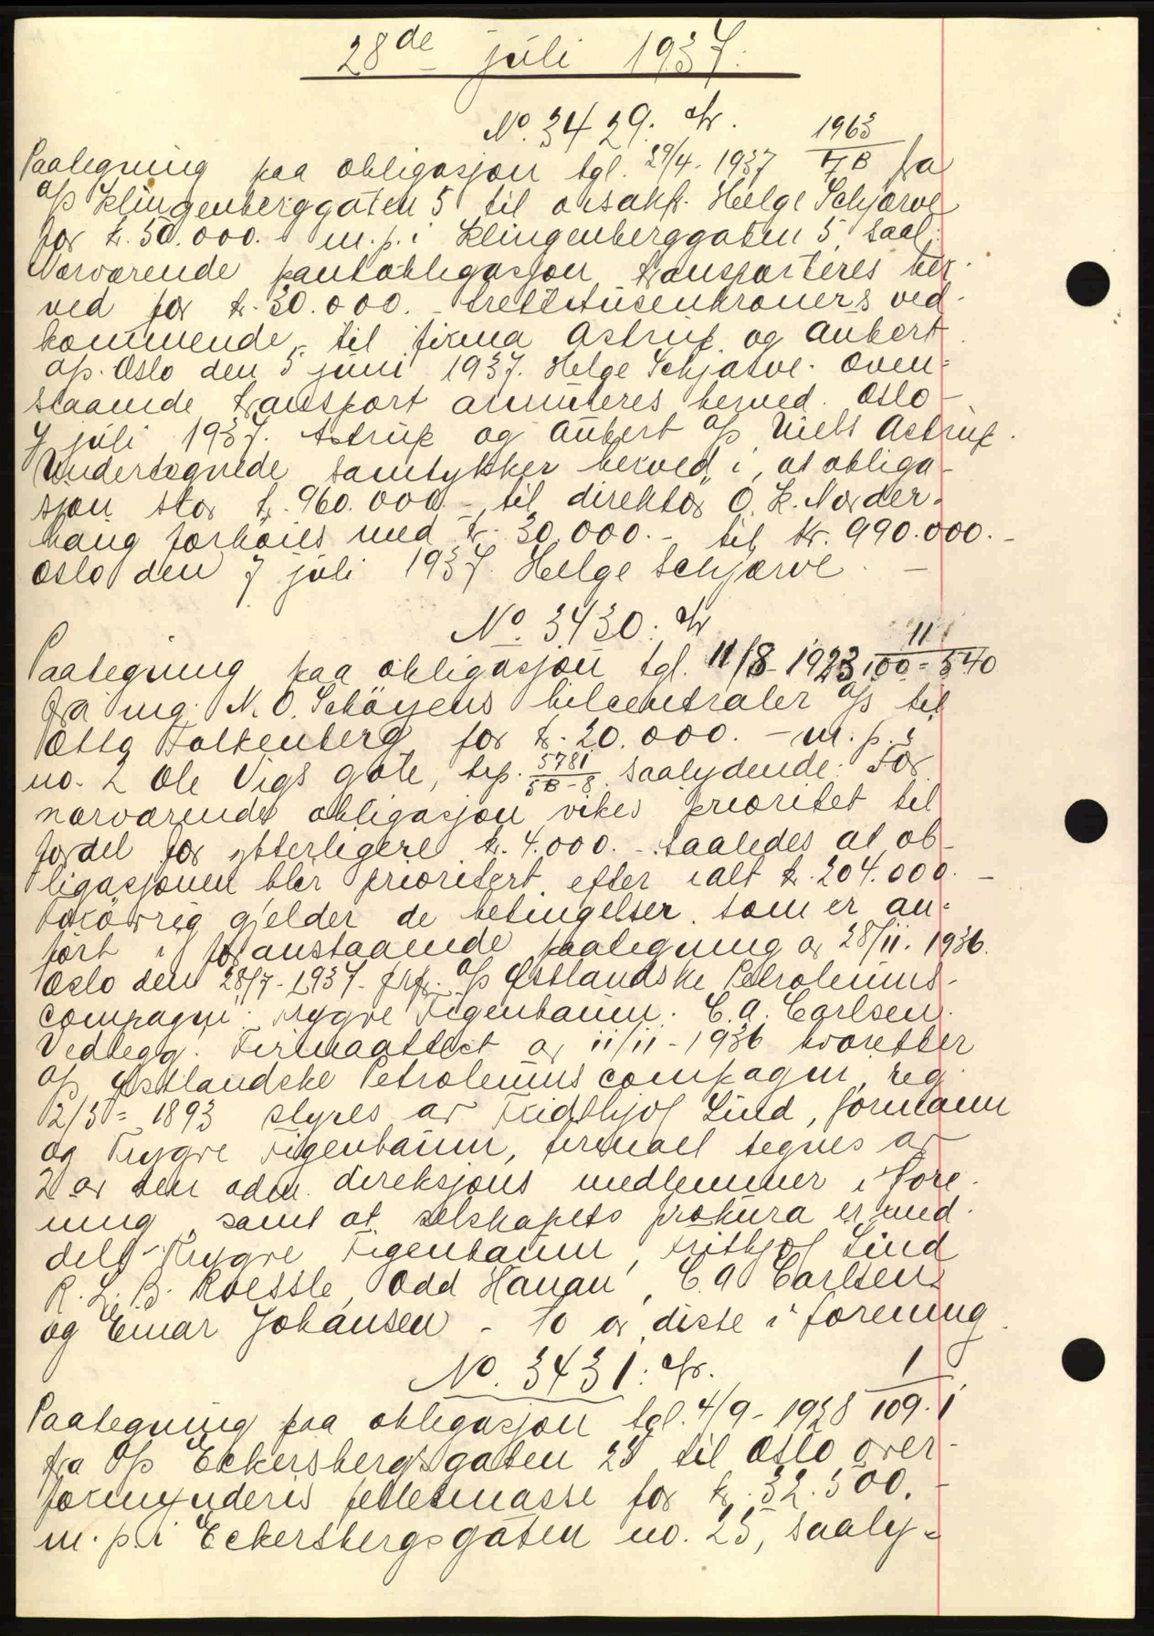 28de juli 1937.
No. 3429. Kr. 1963
Paategning paa obligasjon tgl. 29/4-1937 7B fra
A/s Klingenberggaten 5 til orsakf. Helge Schjærve
for k. 50.000.- m. p. i Klingenberggaten 5, saal.
Nærværende pantobligasjon transporteres her-
ved for k. 30.000.- trettitusenkroners ved-
kommende, til firma Astrup og Aubert
A/s. Oslo den 5 juni 1937. Helge Schjærve. Oven-
staaende transport annuleres herved. Oslo
7 juli 1937. Astrup og Aubert A/s Niels Astrup.
Undertegnede samtykker herved i, at obliga-
sjon stor k. 960.000.- til direktør O. K. Norder-
haug forhøies med kr. 30.000.- til kr. 990.000.-
Oslo den 7 juli 1937. Helge Schjærve.
No. 3430. Kr 11
Paategning paa obligasjon tgl. 11/8-1923 100-540
fra ing. N. O. Schøyens bilcentraler A/s til
Otto Falkenberg for k. 20.000.- m. p. i
no. 2 Ole Vigs gate, 5781 5B-8 saalydende: For
nærværende obligasjon vikes prioritet til
fordel for ytterligere k. 4.000.- saaledes at ob-
ligasjonen blir prioritert efter ialt k. 204.000.-
Forøvrig gjelder de betingelser som er an-
ført i foranstaaende paategning av 28/11. 1936.
Oslo den 28/7-1937- A/s Østlandske Petroleums-
compagni Trygve Figenbaum. C. A. Carlsen.
Vedlegg. Firmaattest av 11/11-1936 hvoretter
A/s Østlandske Petroleumscompagni, reg.
2/3-1893 styres av Fridthjof Lind, formann
og Trygve Figenbaum, firmaet tegnes av
2 av den adm. direksjons medlemmer i fore-
ning, samt at selskapets prokura er med-
delt Trygve Figenbaum, Frithjof Lind
R. L. B. Roessle, Odd Hanan, C. A Carlsen
og Einar Johansen - to av disse i forening.
No. 3431. Kr. 1
Paategning paa obligasjon tgl. 4/9-1928 109-1
fra A/s Eckersbergsgaten 25 til Oslo over-
formynderis fellesmasse for k. 32.500.-
m. p. i Eckersbergsgaten no. 25, saaly-